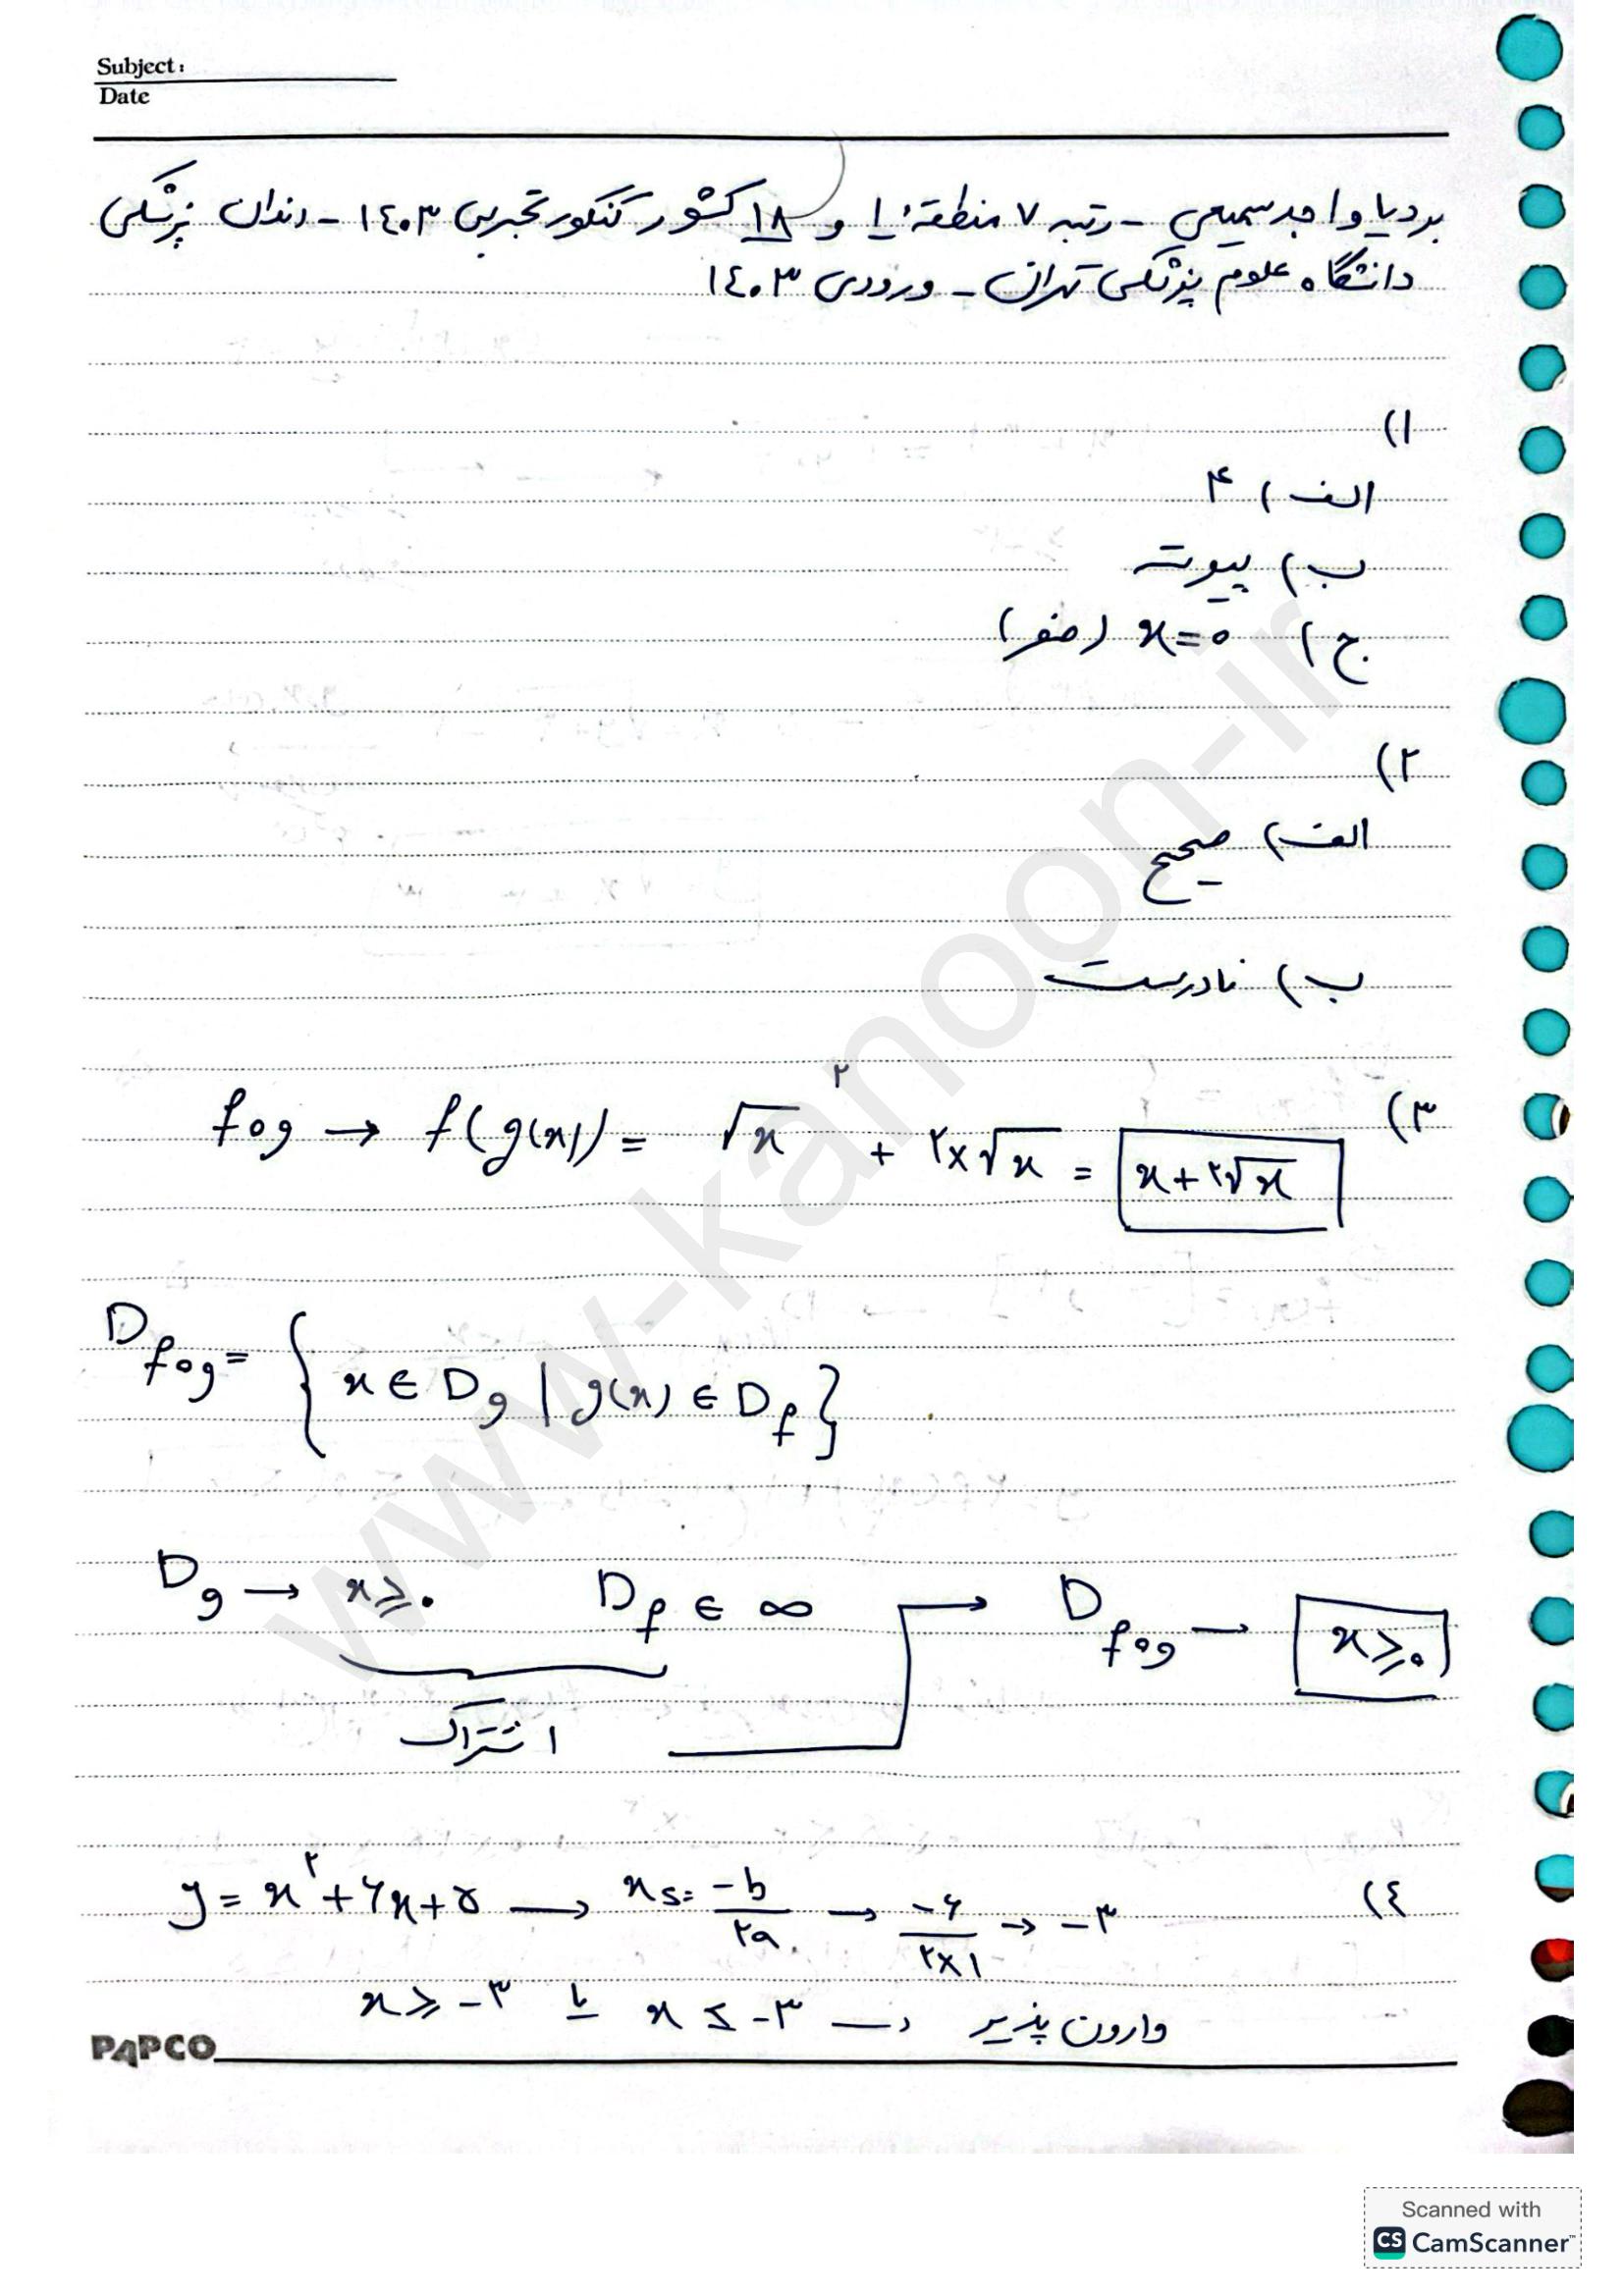 Subject:
Date
بردیا واجد سمیعی - رتبه ۷ منطقهٔ ۱ و ۱۸ کشور کنکور تجربی ۱۴۰۳ - دندان پزشکی
دانشگاه علوم پزشکی تهران - ورودی ۱۴۰۳
۱)
الف) ۴
ب) پیوسته
ج) x=0 (صفر)
۲)
الف) صحیح
ب) نادرست
۳) fog → f(g(x)) = √x² + ۲×√x = x+۲√x
D fog = { x ∈ Dg | g(x) ∈ Df }
Dg → x≥۰ Df ∈ ∞ D fog → x≥۰
اشتراک
۴) y = x² + ۶x + ۵ → xs = -b/۲a → -۶/۲×۱ → -۳
وارون پذیر → x ≤ -۳ یا x ≥ -۳
PAPCO
www-kanoon-ir
Scanned with
CS CamScanner™